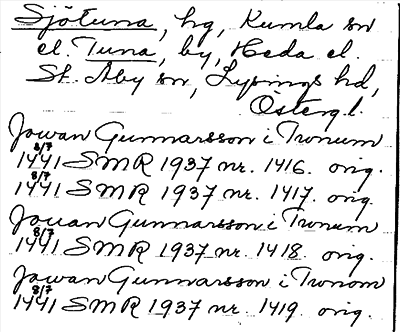 Sjötuna, hg, Kumla sn
el. Tuna, by, Heda el.
St. Åby sn, Lysings hd,
Östergl.
Jowan Gunnarsson i Tronum
8/7
1441 SMR 1937 nr. 1416. orig.
8/7
1441 SMR 1937 nr. 1417. orig.
Jouan Gunnarsson i Tronum
8/7
1441 SMR 1937 nr. 1418. orig.
Jowan Gunnarsson i Tronom
8/7
1441 SMR 1937 nr. 1419. orig.